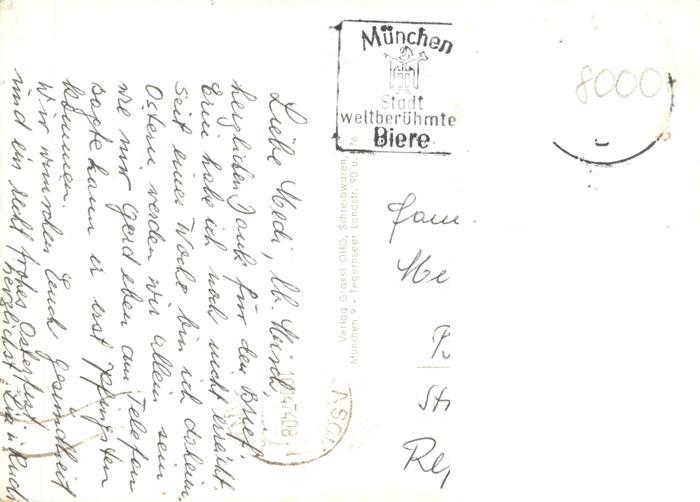 München
Stadt
weltberühmte
Biere
8000
Liebe Medi, lb. Mirsch,
herzlichen Dank für den Brief.
Erni habe ich noch nicht erreicht.
Seit einer Woche bin ich daheim.
Ostern werden wir allein sein
wie mir Gerd eben am Telefon
sagte kann er erst Pfingsten
kommen.
Wir wünschen Euch Gesundheit
und ein recht frohes Osterfest.
herzlichst u. Rudi
Verlag Grassl OHG, Schreibwaren,
München 9 - Tegernseer Landstr. 90 u. 76
Fam.
Me
Str
Rep